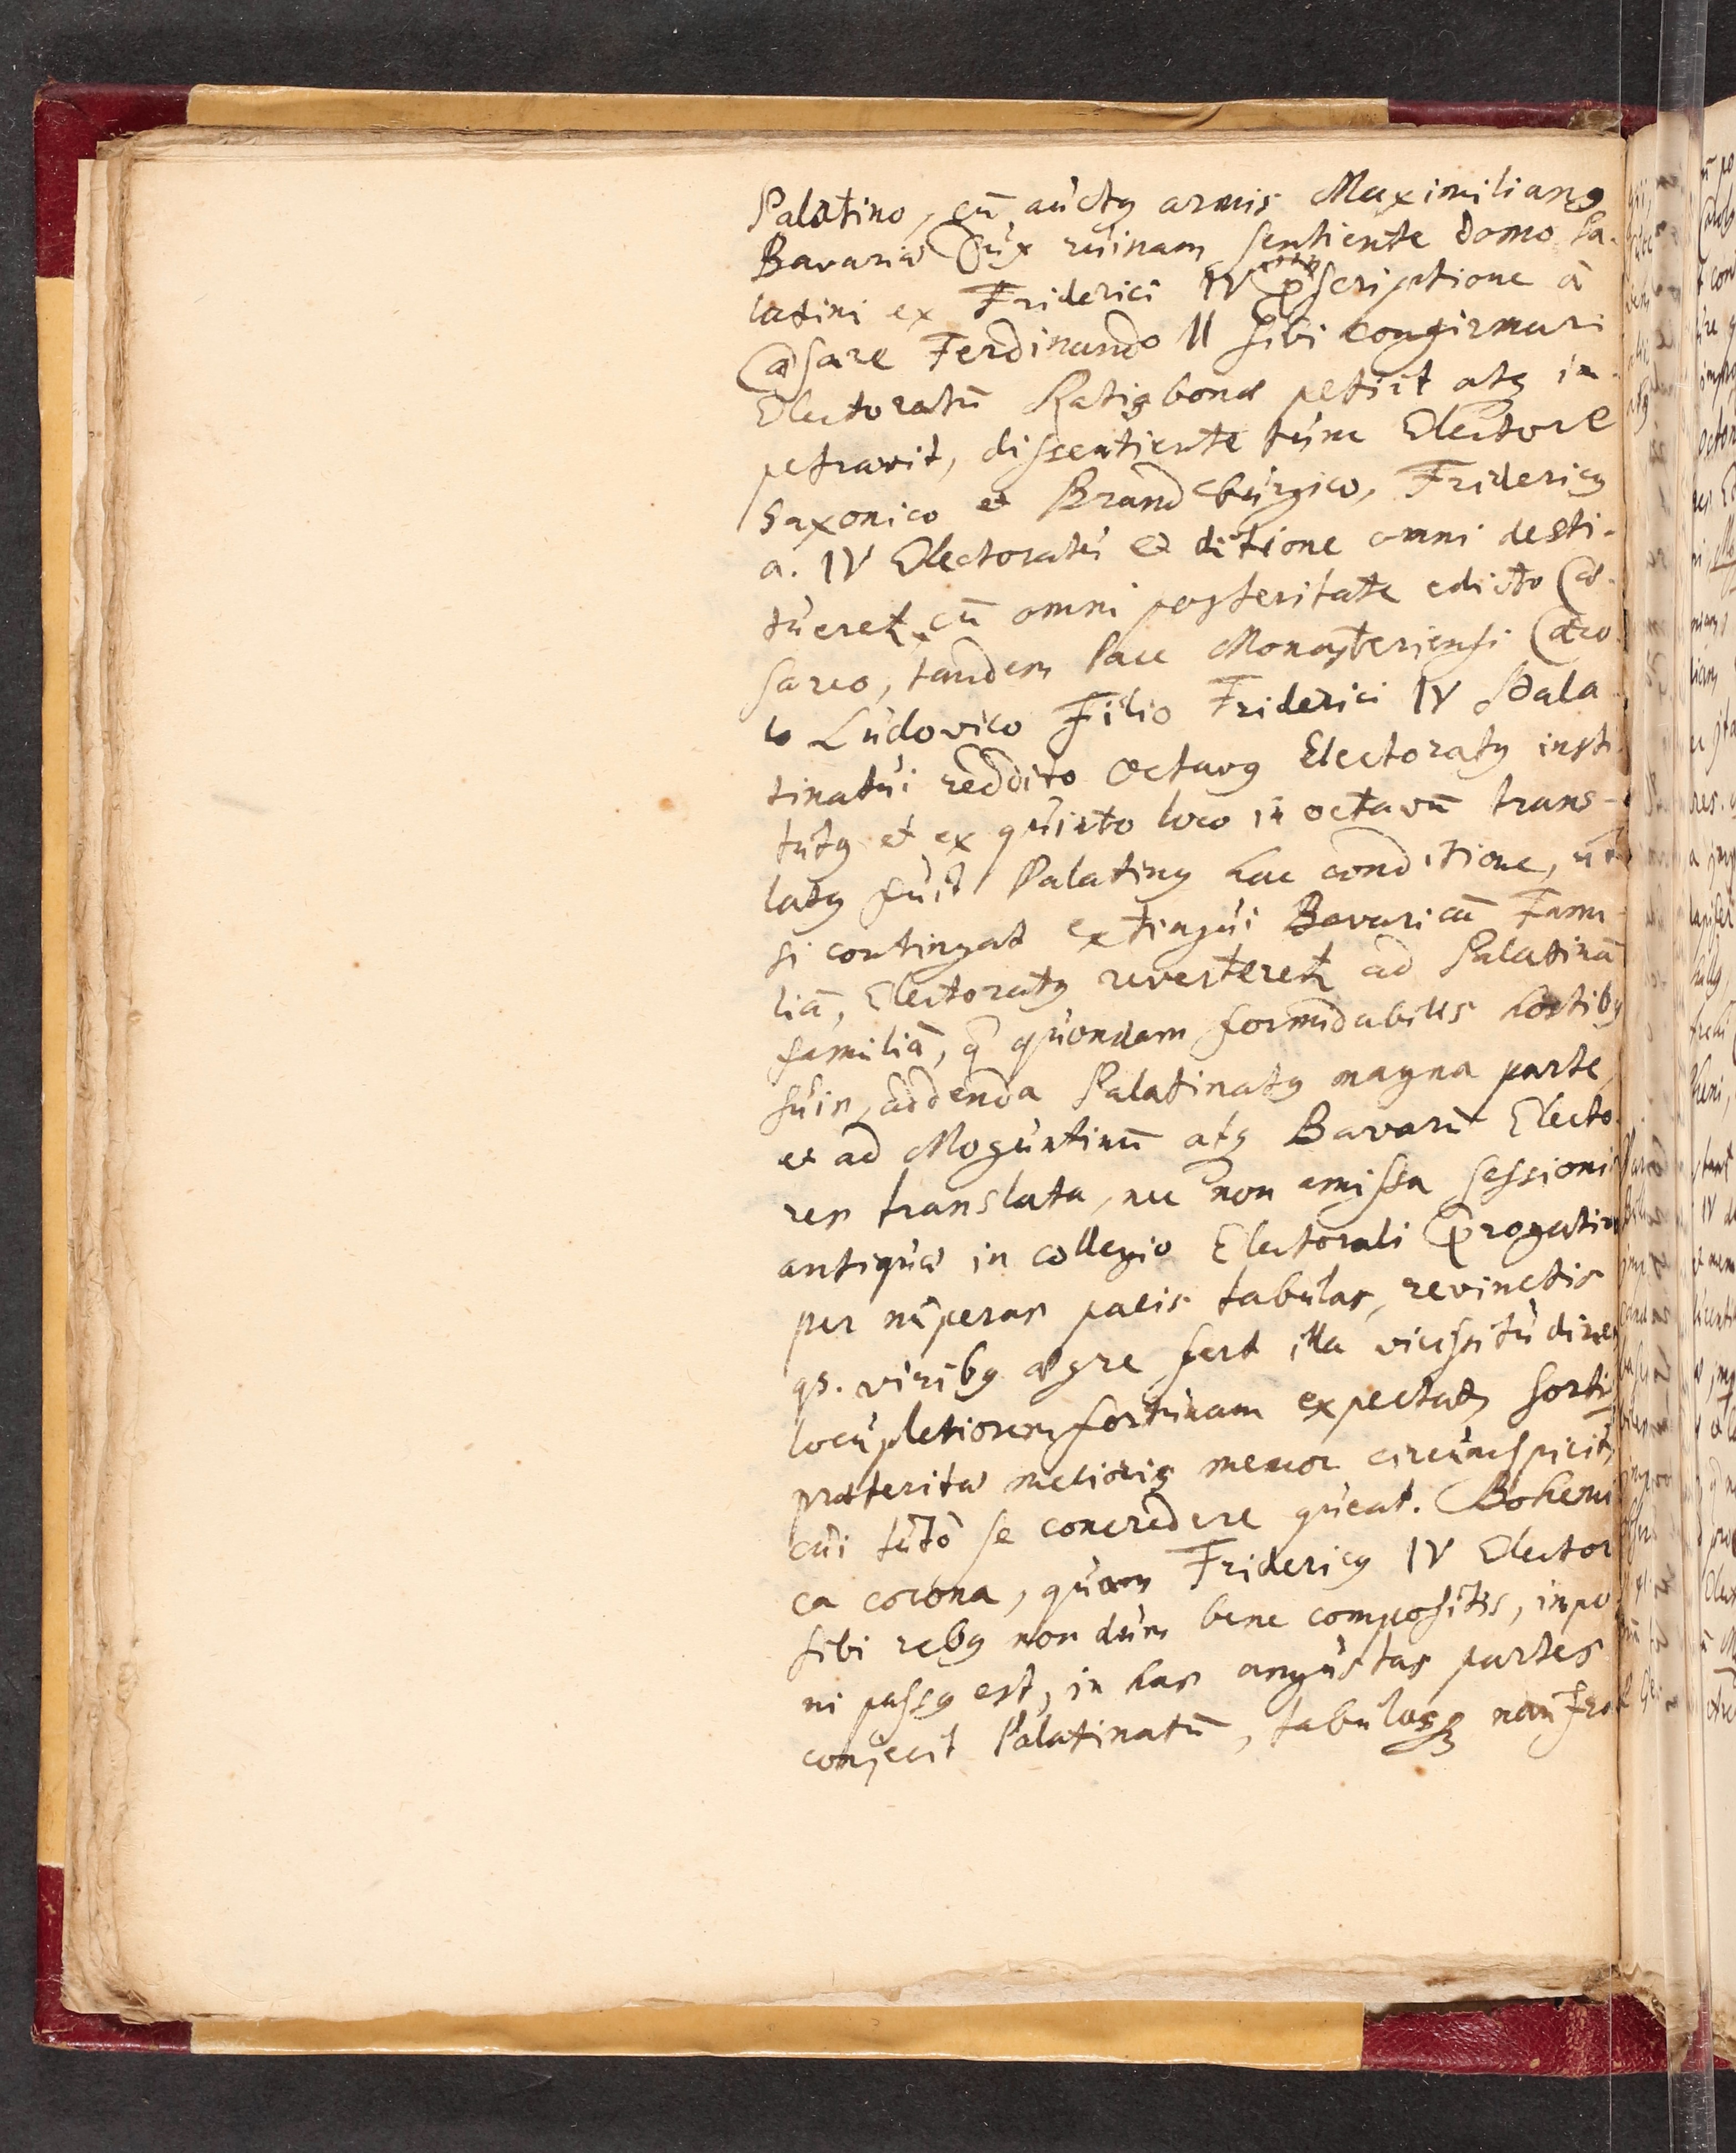 Palatino, cū auctꝰ armis Maximilianꝰ
Bavariæ Dux ruinam sentiente domo Pa-
latini ex Friderici IV proscriptione à
Cæsare Ferdinando II sibi confirmari
Electoratū Ratisbonæ petiit atq; im-
petravit, dissentiente tunc Electore
Saxonico et Brandeburgico, Fridericꝰ
a. IV Electoratu et ditione omni desti-
tueret cū omni posteritate edicto Cæ-
sareo, tandem Pace Monasteriensi Caro-
lo Ludovico Filio Friderici IV Pala
tinatui reddito Octavꝰ Electoratꝰ insti
tutꝰ et ex quinto loco in octavū trans-
latꝰ fuit Palatinꝰ hac conditione, ut
si contingat extingui Bavaricā Fami
liā, Electoratꝰ reverteret ad Palatinā
familiā, q̄ quondam formidabilis hostibꝰ
suis, addenda Palatinatꝰ magna parte
et ad Moguntinū atq; Bavarū Electo
res translata, nec non amissa sessionis
antiquæ in collegio Electorali prærogativa
per nuperas pacis tabulas, revinctis
qs. viribꝰ ægre fert illa vicissitudines
locupletiorem fortunam expectat, sortis
præteritæ melioris memor circumspicit,
cui tutò se concredere queat. Bohemi
ca corona, quam Fridericꝰ IV Elector
sibi rebꝰ non dum bene compositis, impo
ni passꝰ est, in has angustas partes
conjecit Palatinatū, tabulasq; naufra